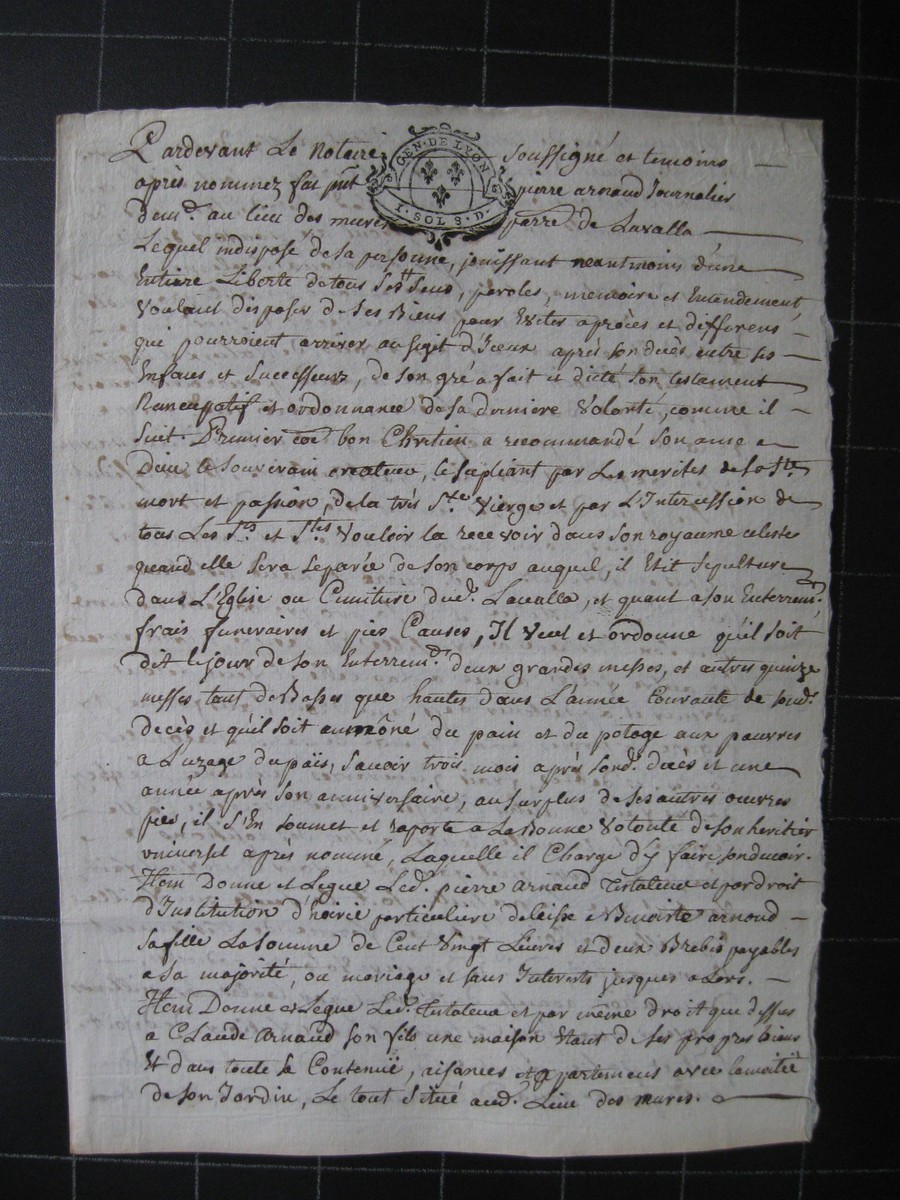 Pardevant Le Notaire soussigné et temoins
après nommez fut pnt pierre arnaud Journalier
demt. au lieu des mures parre de Lavalla
GEN · DE LYON
1 · SOL 8 · D ·
Lequel indisposé de sa personne, jouissant neantmoins d'une
Entiere Liberté de tous Ses Sens, paroles, memoire et Entendement
voulant disposer de Ses Biens pour Eviter aprocès et differens
qui pourroient arriver au sujet d'Iceux après son decès entre ses
Enfans et Successeurs, de son gré a fait et dicté son testament
Nuncupatif et ordonnance de sa derniere Volonté, comme il
suit. Premier coe bon Chrétien a recommandé son ame a
Dieu le souverain createur, le supliant par Les merites de sa Ste
mort et passion, de la très Ste. Vierge et par L'Intercession de
tous Les Sts et Stes Vouloir la recevoir dans son royaume celeste
quand elle sera separée de son corps auquel, il Elit sepulture
dans L'Eglise ou Cimitière dud. Lavalla, et quant a son Enterremt.
frais funeraires et pies Causes, Il veut et ordonne qu'il soit
dit le jour de son Enterremt. deux grandes messes, et autres quinze
messes tant de Basses que hautes dans L'année Courante de sond.
decès et qu'il soit aumôné du pain et du potage aux pauvres
a L'uzage du païs, savoir trois mois après sond. decès et une
année après son anniversaire, au surplus de ses autres œuvres
pies, il s'En soumet et raporte a La Bonne Volonté de son heritier
universel après nommé, Laquelle il Charge d'y faire son devoir.
Item Donne et Legue Led. pierre Arnaud testateur et par droit
d'Institution d'hoirie particuliere delaisse a Benoite arnaud
sa fille La somme de Cent Vingt Livres et deux Brebis payables
a sa majorité, ou mariage et sans Interets jusques a Lors.
Item Donne et Legue Led. testateur et par même droit que dessus
a Claude Arnaud son fils une maison Etant de ses propres biens
Et dans toute sa Contenüe, aisances et apartemens avec la moitié
de son Jardin, Le tout situé aud. Lieu des mures.